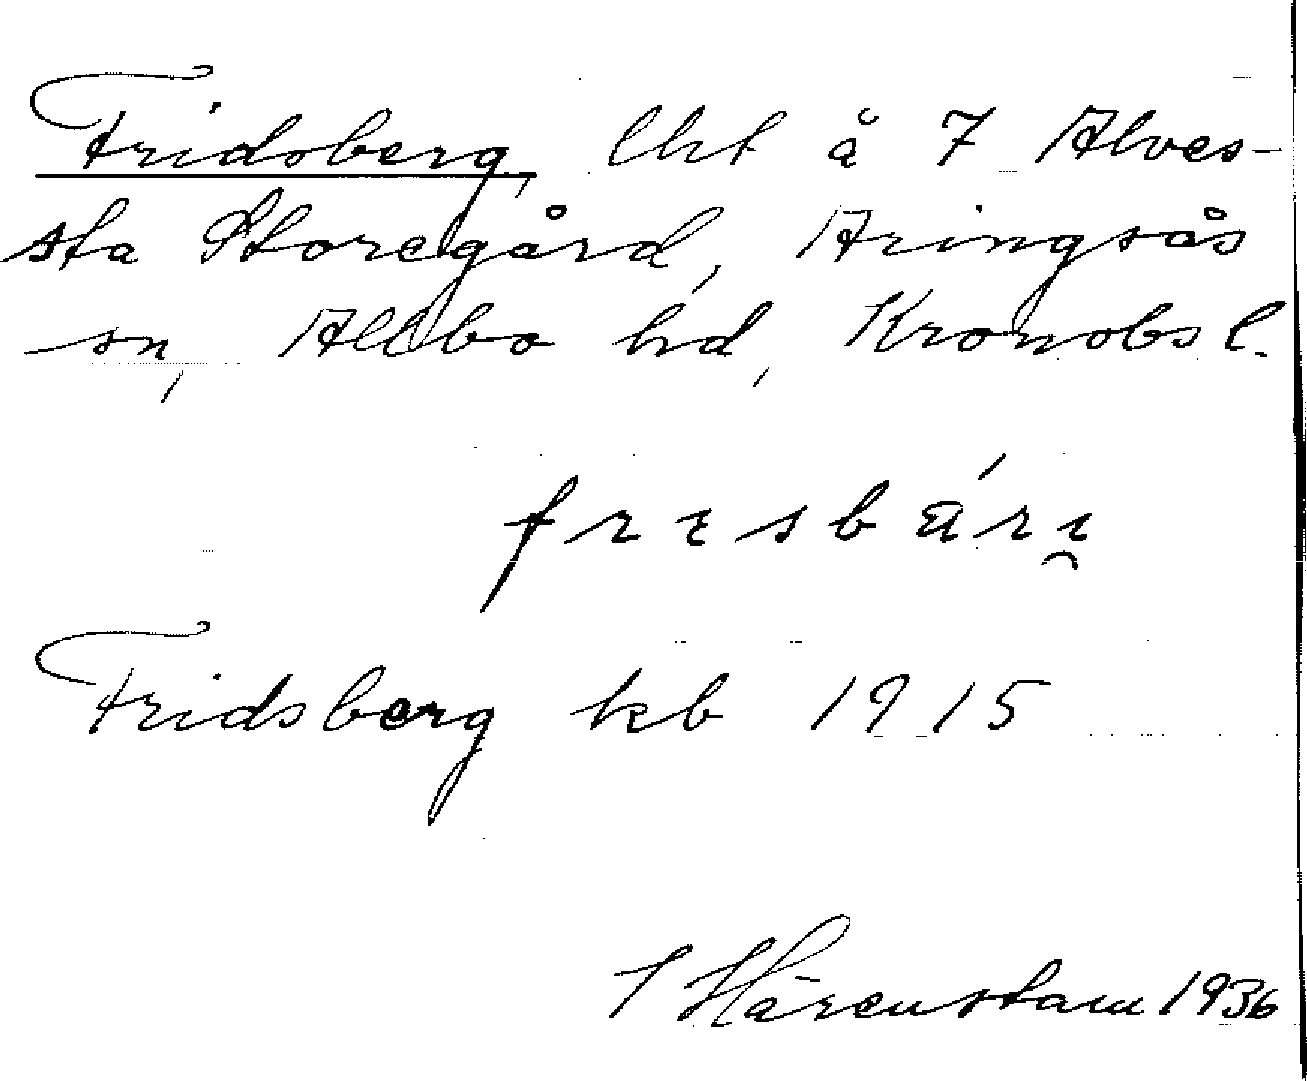 Fridsberg, lht å 7 Alves-
sta Storegård, Aringsås
sn, Allbo hd, Kronobs l.
Fridsberg kb 1915
Härenstam 1936